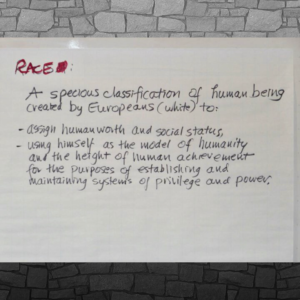 RACE:
A specious classification of human being
created by Europeans (white) to:
- assign human worth and social status,
- using himself as the model of humanity
and the height of human achievement
for the purposes of establishing and
maintaining systems of privilege and power.